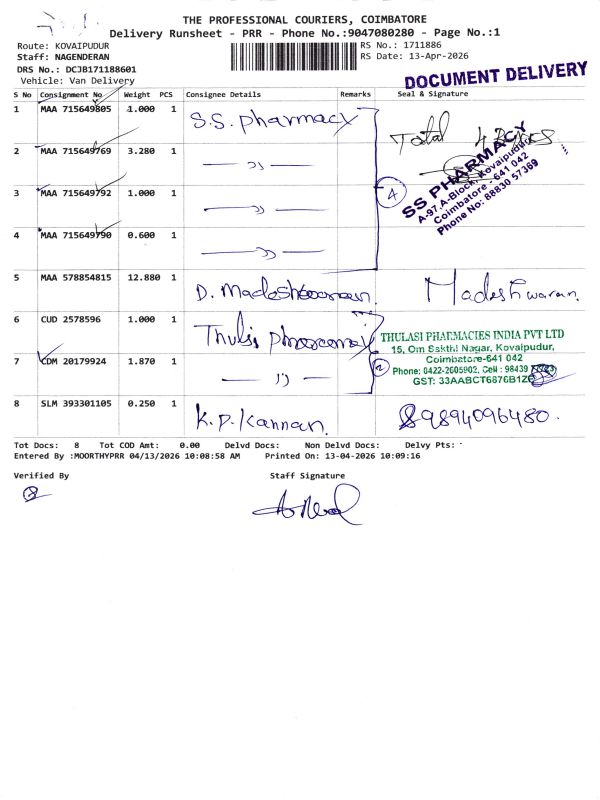 THE PROFESSIONAL COURIERS, COIMBATORE
Delivery Runsheet - PRR - Phone No.:9047080280 - Page No.:1
Route: KOVAIPUDUR
RS No.: 1711886
Staff: NAGENDERAN
RS Date: 13-Apr-2026
DRS No.: DCJB171188601
Vehicle: Van Delivery
DOCUMENT DELIVERY
S No Consignment No Weight PCS Consignee Details Remarks Seal & Signature
1 MAA 715649805 1.000 1 S.S. Pharmacy
Total 4
2 MAA 715649769 3.280 1 — 〃 —
SS PHARMACY
A-97, A-Block, Kovaipudur
Coimbatore - 641 042
Phone No: 88830 57369
3 MAA 715649792 1.000 1 — 〃 —
4
4 MAA 715649790 0.600 1 — 〃 —
5 MAA 578854815 12.880 1 D. Madeshwaran. Madeshwaran.
6 CUD 2578596 1.000 1 Thulsi pharmacy
THULASI PHARMACIES INDIA PVT LTD
15, Om Sakthi Nagar, Kovaipudur,
Coimbatore-641 042
7 CDM 20179924 1.870 1 — 〃 —
2
Phone: 0422-2605902, Cell : 98439
GST: 33AABCT6876B1Z
8 SLM 393301105 0.250 1 K.P. Kannan. 9894096480.
Tot Docs: 8 Tot COD Amt: 0.00 Delvd Docs: Non Delvd Docs: Delvy Pts:
Entered By :MOORTHYPRR 04/13/2026 10:08:58 AM Printed On: 13-04-2026 10:09:16
Verified By Staff Signature